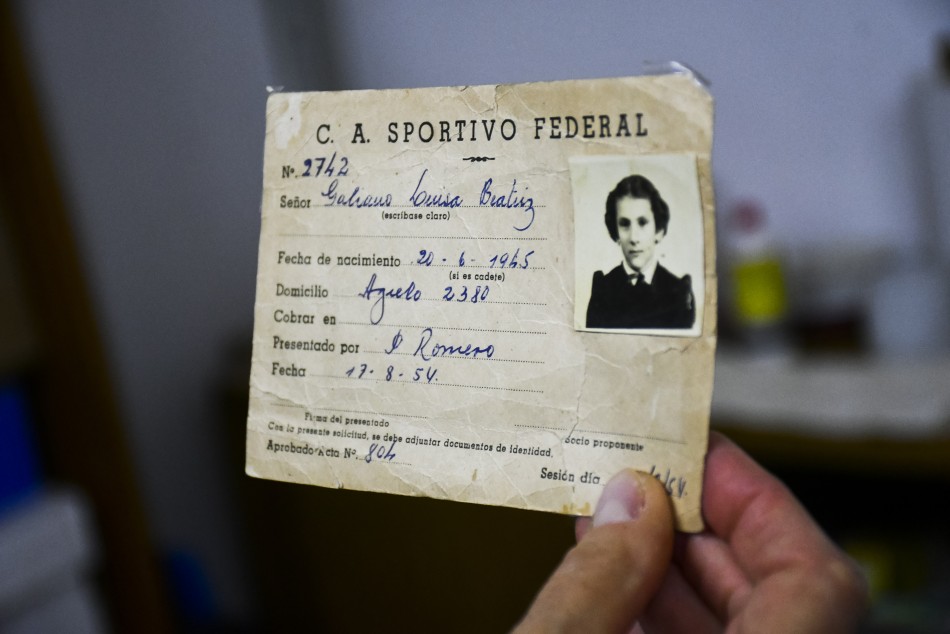 C. A. SPORTIVO FEDERAL
Nº. 2742
Señor Galiano Luisa Beatriz
(escríbase claro)
Fecha de nacimiento 20 - 6 - 1945
(si es cadete)
Domicilio Agrelo 2380
Cobrar en
Presentado por P Romero
Fecha 17 - 8 - 54.
Firma del presentado
Socio proponente
Con la presente solicitud, se debe adjuntar documentos de identidad.
Aprobado Acta Nº. 804
Sesión día